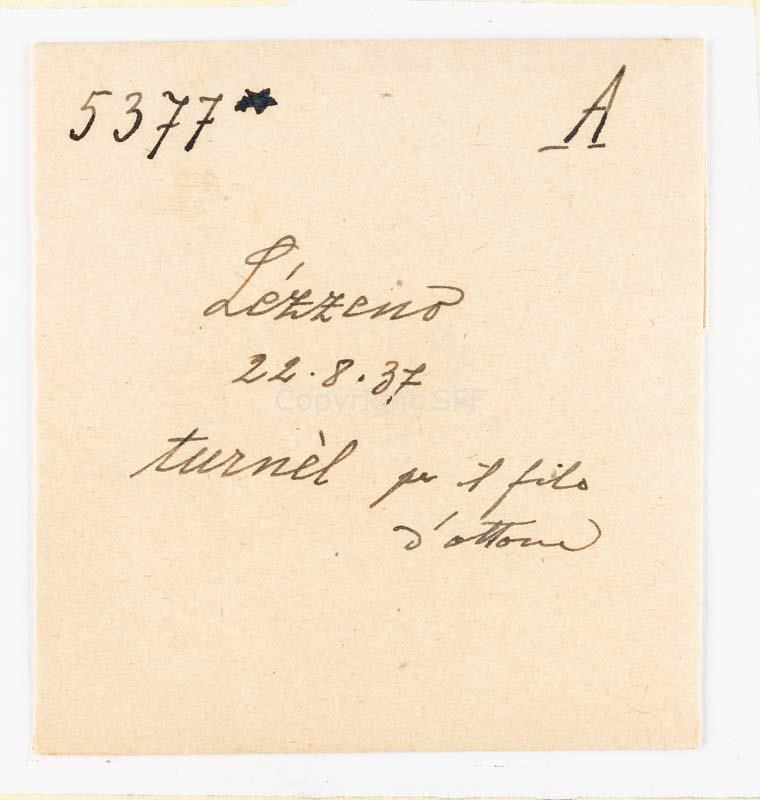 5377* A
Lézzeno
22.8.37
Copyright SPF
turnèl per il filo
d'ottone